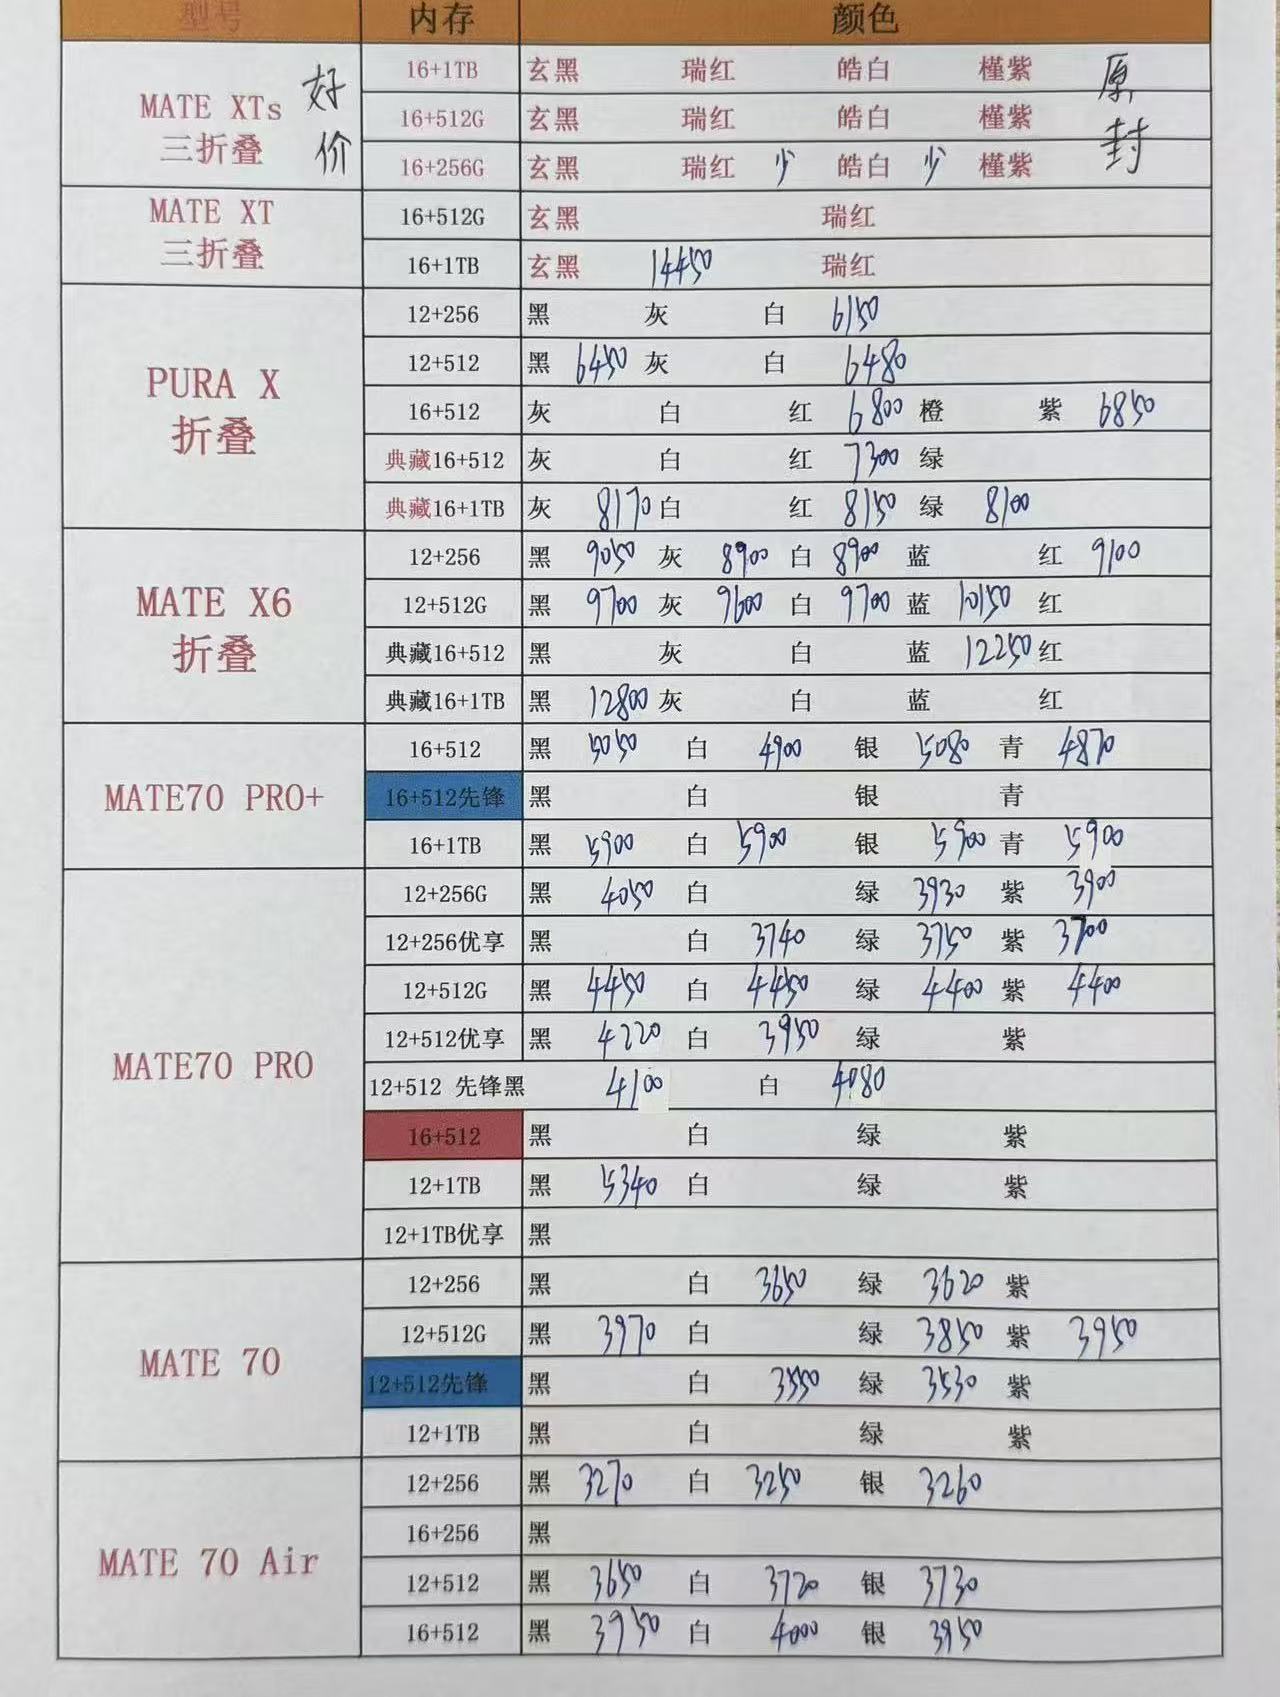 型号 内存 颜色
MATE XTs 三折叠 好价 16+1TB 玄黑 瑞红 皓白 槿紫 原封
16+512G 玄黑 瑞红 皓白 槿紫
16+256G 玄黑 瑞红 少 皓白 少 槿紫
MATE XT 三折叠 16+512G 玄黑 瑞红
16+1TB 玄黑 14450 瑞红
PURA X 折叠 12+256 黑 灰 白 6150
12+512 黑 6450 灰 白 6480
16+512 灰 白 红 6800 橙 紫 6850
典藏16+512 灰 白 红 7300 绿
典藏16+1TB 灰 8170 白 红 8150 绿 8100
MATE X6 折叠 12+256 黑 9050 灰 8900 白 8900 蓝 红 9100
12+512G 黑 9700 灰 9600 白 9700 蓝 10150 红
典藏16+512 黑 灰 白 蓝 12250 红
典藏16+1TB 黑 12800 灰 白 蓝 红
MATE70 PRO+ 16+512 黑 5050 白 4900 银 5080 青 4870
16+512先锋 黑 白 银 青
16+1TB 黑 5900 白 5900 银 5900 青 5900
MATE70 PRO 12+256G 黑 4050 白 绿 3930 紫 3900
12+256优享 黑 白 3740 绿 3750 紫 3700
12+512G 黑 4450 白 4450 绿 4400 紫 4400
12+512优享 黑 4220 白 3950 绿 紫
12+512 先锋黑 4100 白 4080
16+512 黑 白 绿 紫
12+1TB 黑 5340 白 绿 紫
12+1TB优享 黑
MATE 70 12+256 黑 白 3650 绿 3620 紫
12+512G 黑 3970 白 绿 3850 紫 3950
12+512先锋 黑 白 3550 绿 3530 紫
12+1TB 黑 白 绿 紫
MATE 70 Air 12+256 黑 3270 白 3250 银 3260
16+256 黑
12+512 黑 3650 白 3720 银 3730
16+512 黑 3950 白 4000 银 3950